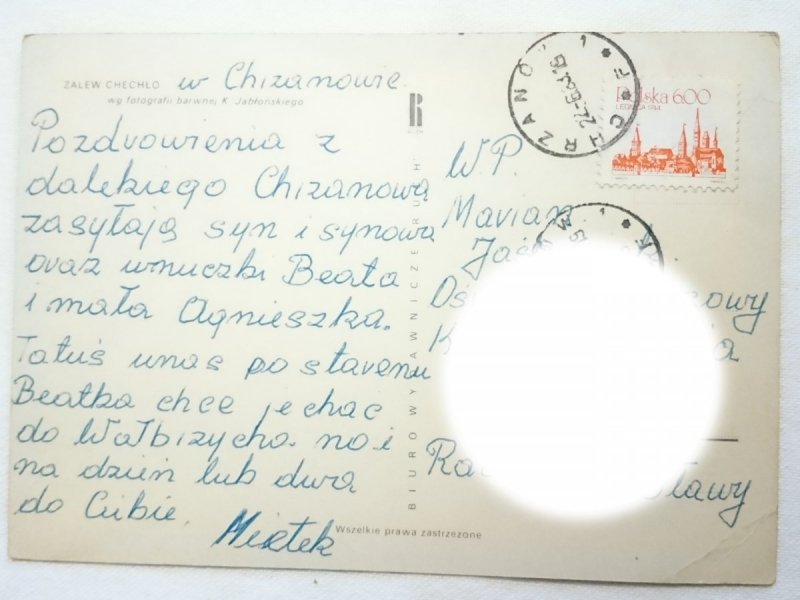 ZALEW CHECHŁO w Chrzanowie
wg fotografii barwnej K. Jabłońskiego
Pozdrowienia z
dalekiego Chrzanowa
zasyłają syn i synowa
oraz wnuczki Beata
i mała Agnieszka.
Tatuś unas po staremu
Beatka chce jechać
do Wałbrzycha. no i
na dzień lub dwa
do Ciebie.
Mietek
BIURO WYDAWNICZE RUCH
Wszelkie prawa zastrzeżone
CHRZANÓW 1
Polska 6.00
LEGNICA 1744
W.P.
Marian